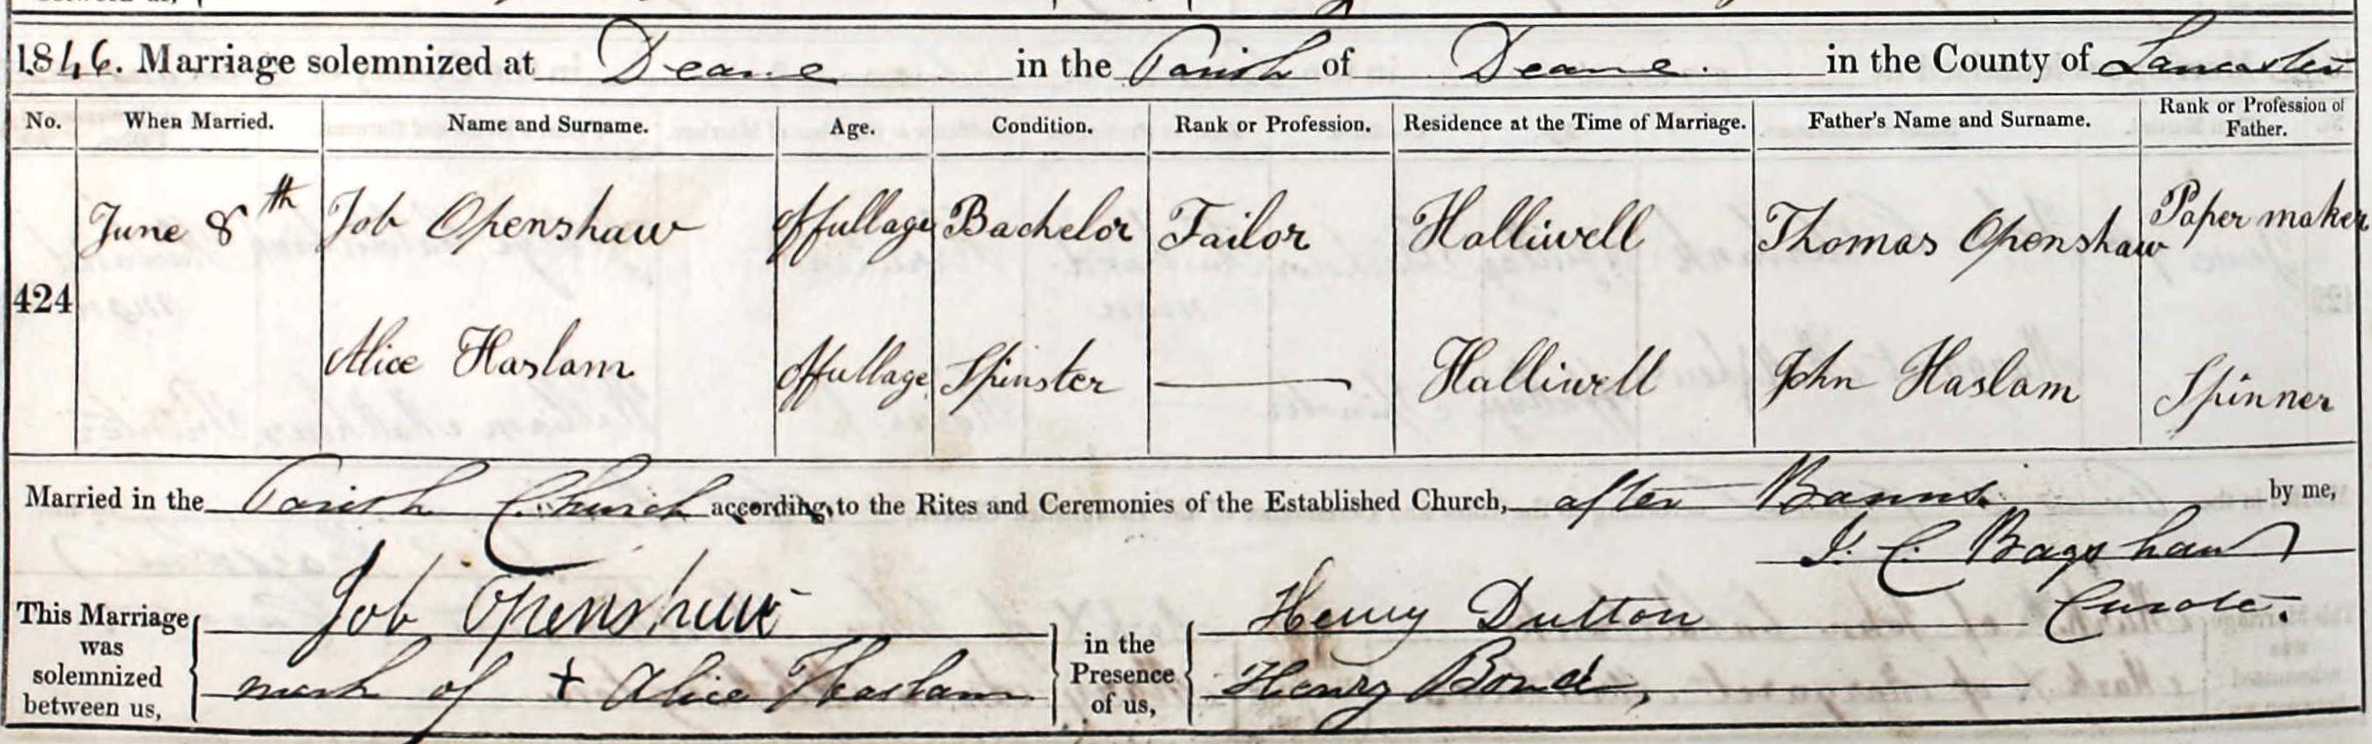 1846. Marriage solemnized at Deane in the Parish of Deane. in the County of Lancaster
No. When Married. Name and Surname. Age. Condition. Rank or Profession. Residence at the Time of Marriage. Father's Name and Surname. Rank or Profession of Father.
424 June 8th Job Openshaw Offullage Bachelor Tailor Halliwell Thomas Openshaw Paper maker
Alice Haslam Offullage Spinster Halliwell John Haslam Spinner
Married in the Parish Church according to the Rites and Ceremonies of the Established Church, after Banns. by me,
J. C. Bagshaw
Curate.
This Marriage was solemnized between us, Job Openshaw in the Presence of us, Henry Dutton
mark of + Alice Haslam Henry Bond,